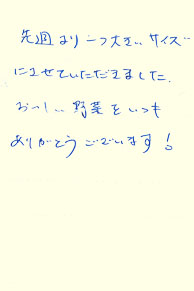 先週より一つ大きいサイズ
にさせていただきました。
おいしい野菜をいつも
ありがとうございます！